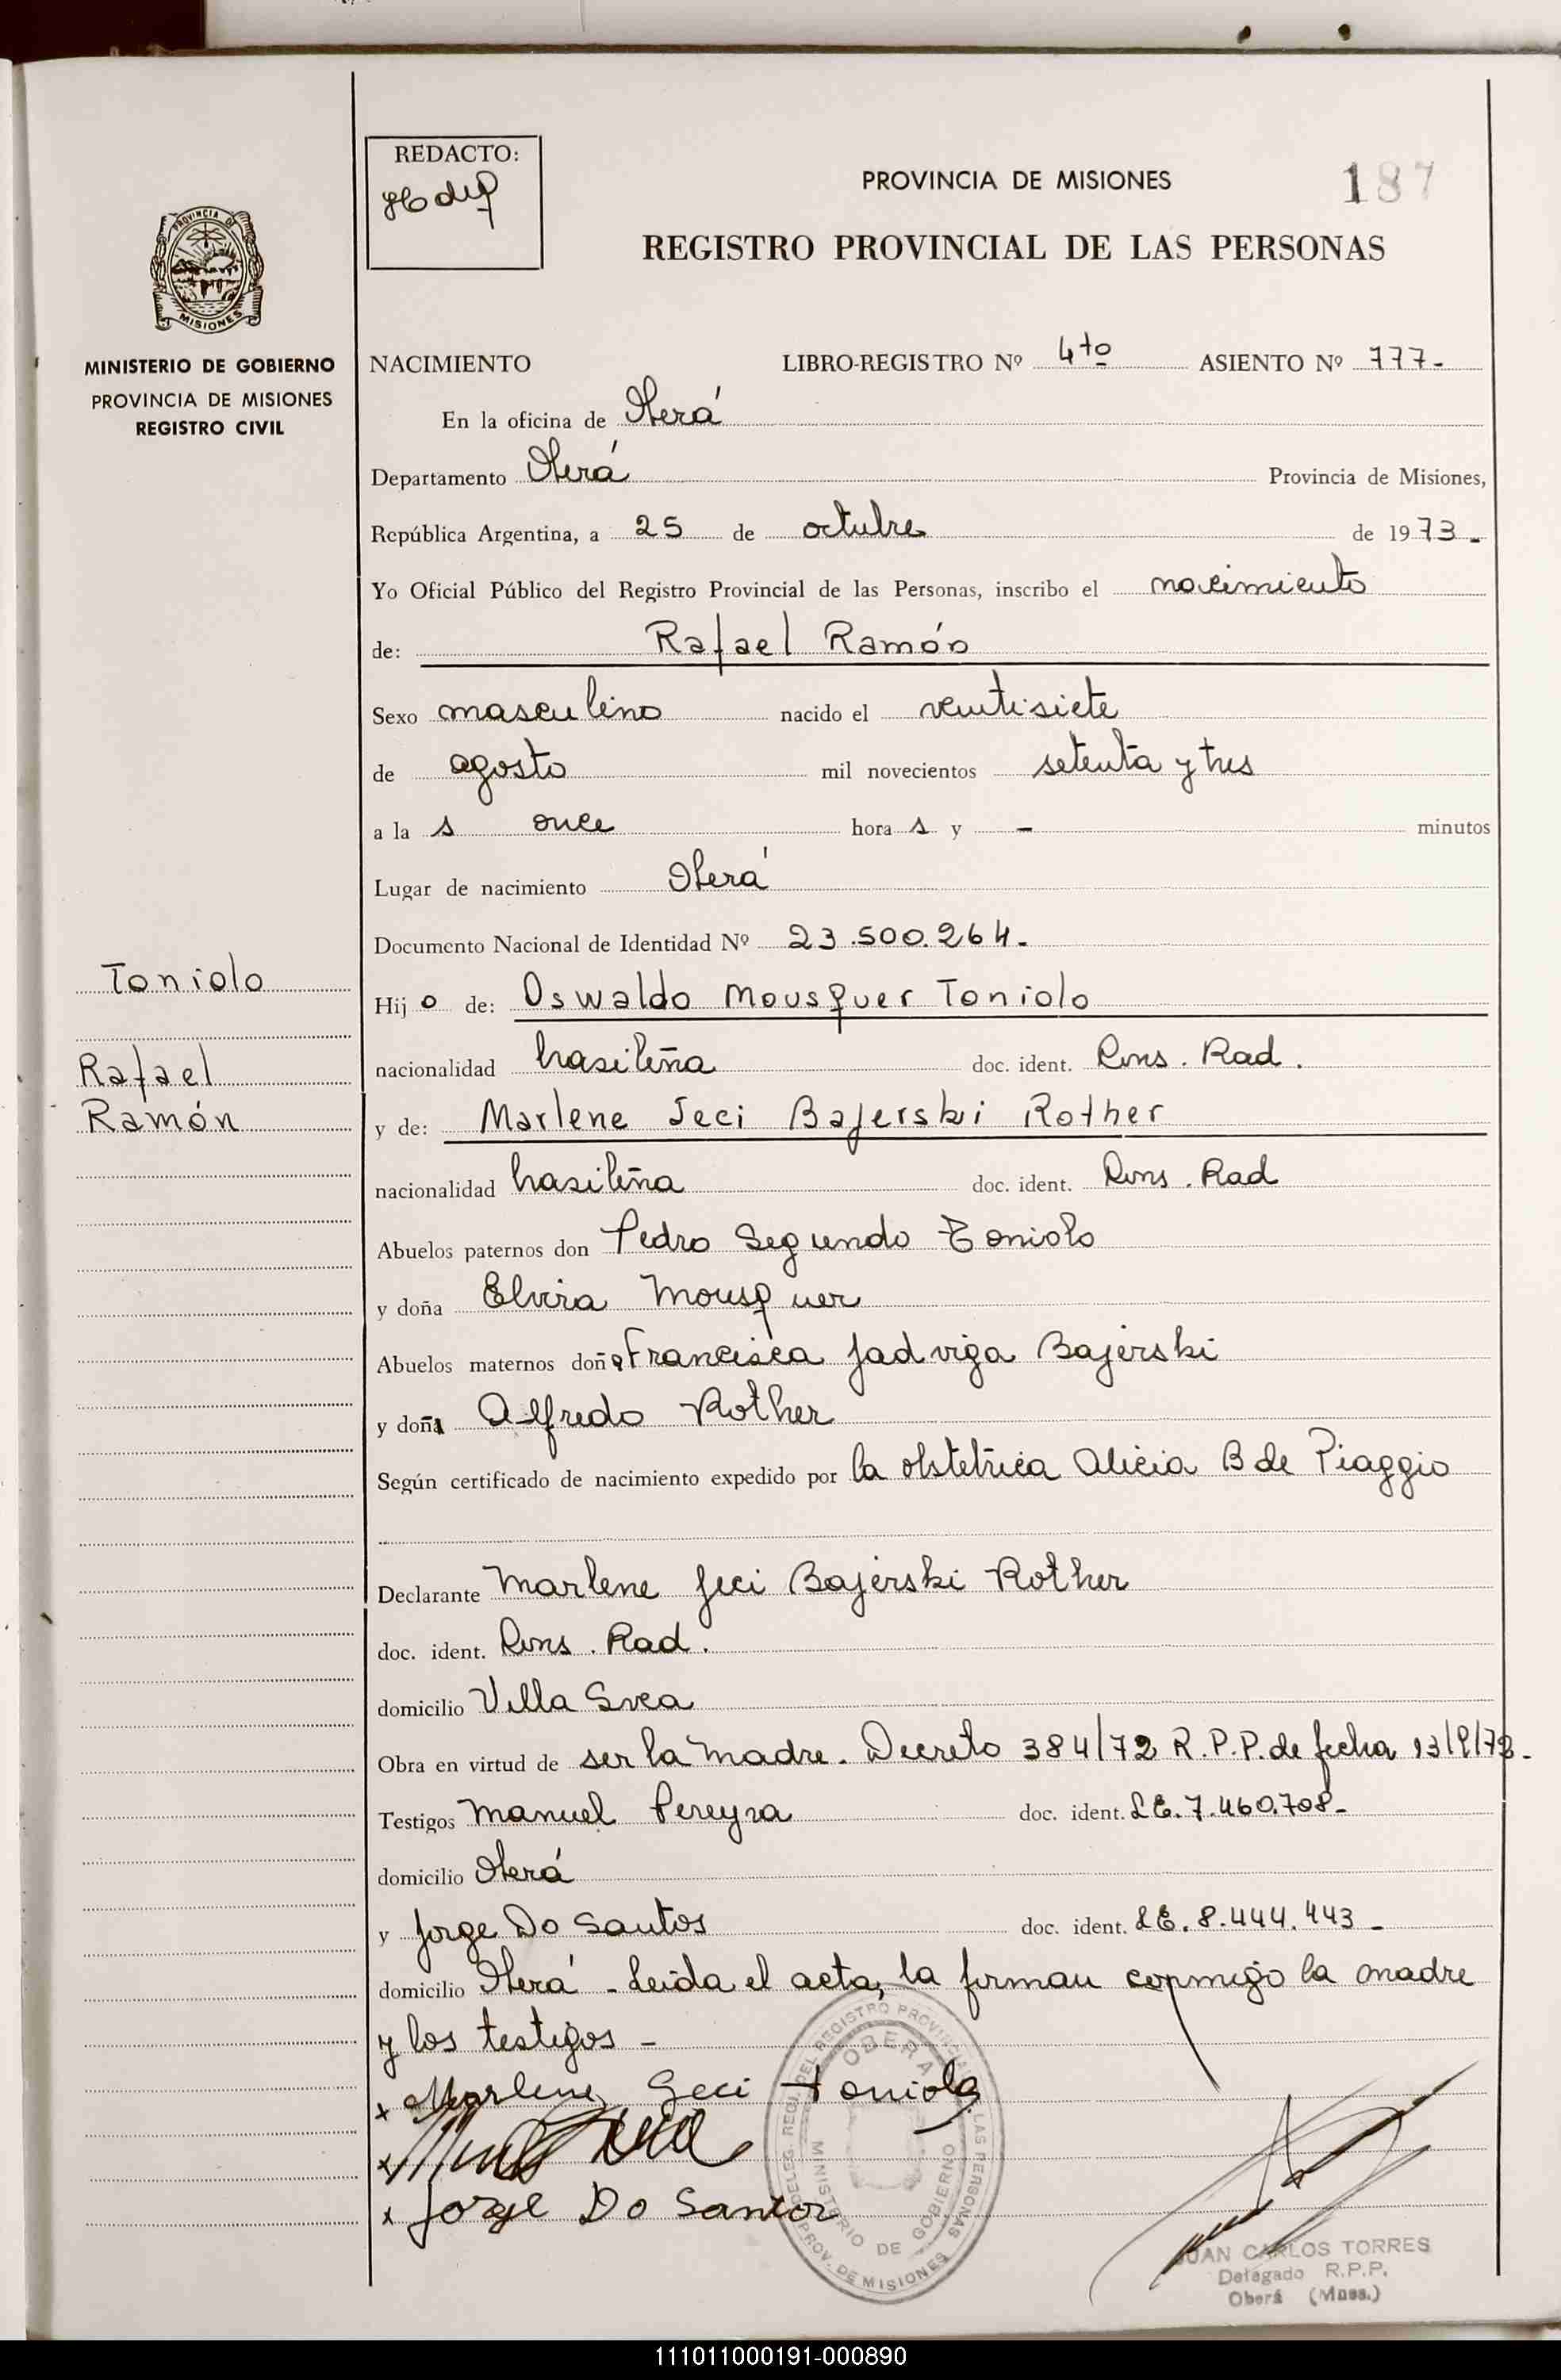 REDACTO:
PROVINCIA DE MISIONES
187
REGISTRO PROVINCIAL DE LAS PERSONAS
PROVINCIA DE
MISIONES
MINISTERIO DE GOBIERNO
PROVINCIA DE MISIONES
REGISTRO CIVIL
NACIMIENTO LIBRO-REGISTRO Nº 4to ASIENTO Nº 777-
En la oficina de Oberá
Departamento Oberá Provincia de Misiones,
República Argentina, a 25 de octubre de 1973-
Yo Oficial Público del Registro Provincial de las Personas, inscribo el nacimiento
de: Rafael Ramón
Sexo masculino nacido el veintisiete
de agosto mil novecientos setenta y tres
a las once horas y - minutos
Lugar de nacimiento Oberá
Documento Nacional de Identidad Nº 23.500.264-
Toniolo
Hijo de: Oswaldo Mousquer Toniolo
nacionalidad brasileña doc. ident. Rad.
Rafael
Ramón
y de: Marlene Jeci Bajerski Rother
nacionalidad brasileña doc. ident. Rad
Abuelos paternos don Pedro Segundo Toniolo
y doña Elvira Mousquer
Abuelos maternos doña Francisca Jadviga Bajerski
y don Alfredo Rother
Según certificado de nacimiento expedido por la obstetrica Alicia B de Piaggio
Declarante Marlene Jeci Bajerski Rother
doc. ident. Rad.
domicilio Villa Svea
Obra en virtud de ser la madre. Decreto 384/72 R.P.P. de fecha
Testigos Manuel Pereyra doc. ident. LE.7.460.708-
domicilio Oberá
y Jorge Do Santos doc. ident. LE.8.444.443-
domicilio Oberá - Leida el acta, la firman conmigo la madre
y los testigos -
x Marlene Geci Toniolo
x Jorge Do Santos
DELEG. REGI. DEL REGISTRO PROVINCIAL DE LAS PERSONAS
OBERA
MINISTERIO DE GOBIERNO
PROV. DE MISIONES
JUAN CARLOS TORRES
Delegado R.P.P.
Oberá (Mnes.)
111011000191-000890